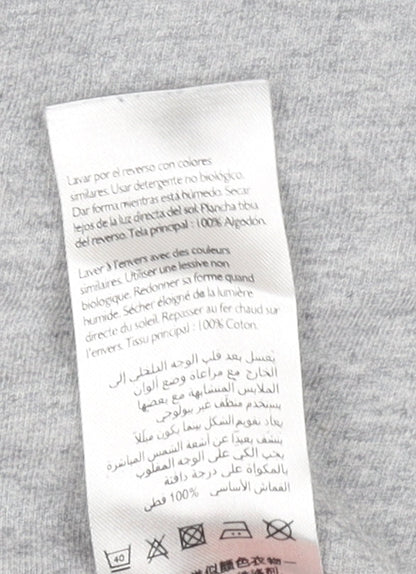 Lavar por el reverso con colores
similares. Usar detergente no biológico.
Dar forma mientras está húmedo. Secar
lejos de la luz directa del sol. Plancha tibia
del reverso. Tela principal : 100% Algodón.
Laver à l'envers avec des couleurs
similaires. Utiliser une lessive non
biologique. Redonner sa forme quand
humide. Sécher éloigné de la lumière
directe du soleil. Repasser au fer chaud sur
l'envers. Tissu principal : 100% Coton.
يُغسل بعد قلب الوجه الداخلي إلى
الخارج مع مراعاة وضع ألوان
الملابس المتشابهة مع بعضها
يستخدم منظف غير بيولوجي
يعاد تقويم الشكل بينما يكون مبللاً
ينشف بعيداً عن أشعة الشمس المباشرة
يجب الكي على الوجه المقلوب
بالمكواة على درجة دافئة
القماش الأساسي 100% قطن
40
似顏色衣物一